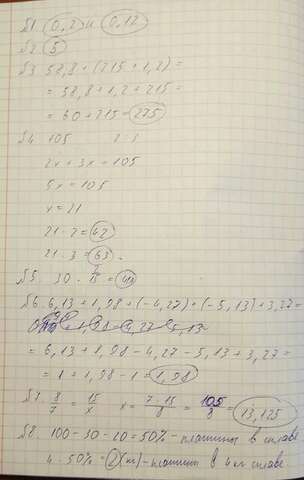 №1 0,2 и 0,12
№2 5
№3 58,8 + (215 + 1,2) =
= 58,8 + 1,2 + 215 =
= 60 + 215 = 275
№4 105 2 3
2x + 3x = 105
5x = 105
x = 21
21 · 2 = 42
21 · 3 = 63.
№5. 30 ·
№6. 6,13 + 1,98 + (-4,27) + (-5,13) + 3,27 =
= 6,13 + 1,98 - 4,27 - 5,13 + 3,27 =
= 1 + 1,98 - 1 = 1,98
№7. 8/7 = 15/x x = 7·15/8 = 105/8 = 13,125
№8. 100 - 30 - 20 = 50% - платины в сплаве
4 · 50% = 2 (кг) - платины в 4 кг сплаве